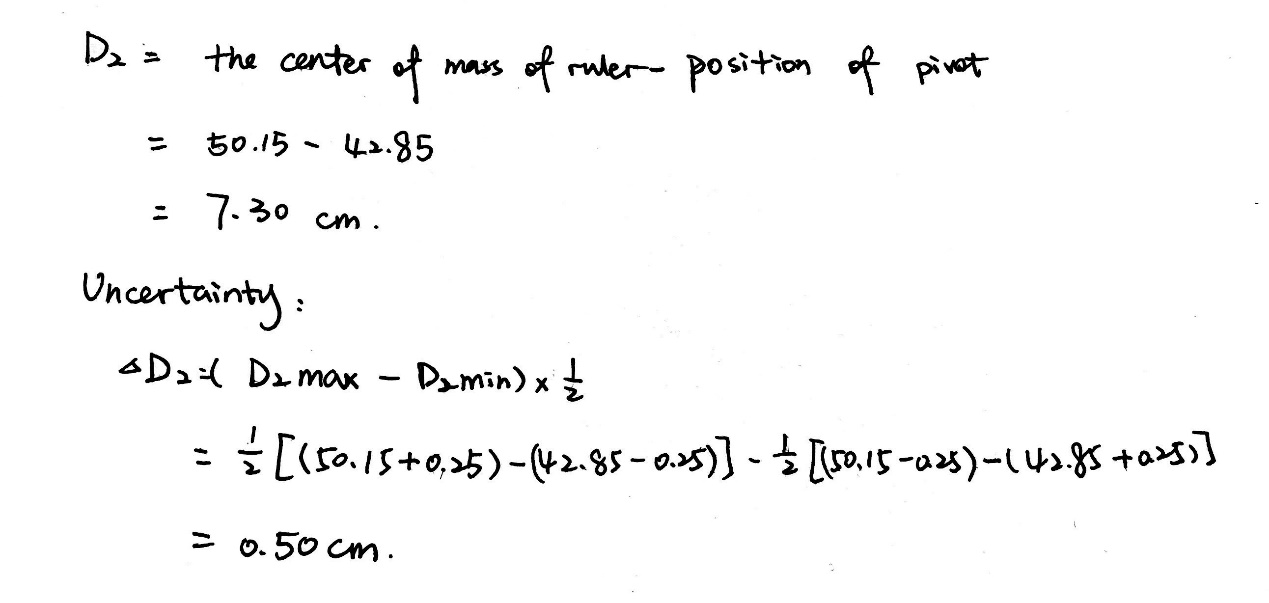 D₂ = the center of mass of ruler - position of pivot
= 50.15 - 42.85
= 7.30 cm.
Uncertainty:
ΔD₂=( D₂ max - D₂min) x 1/2
= 1/2 [(50.15+0.25)-(42.85-0.25)] - 1/2 [(50.15-0.25)-(42.85+0.25)]
= 0.50 cm.